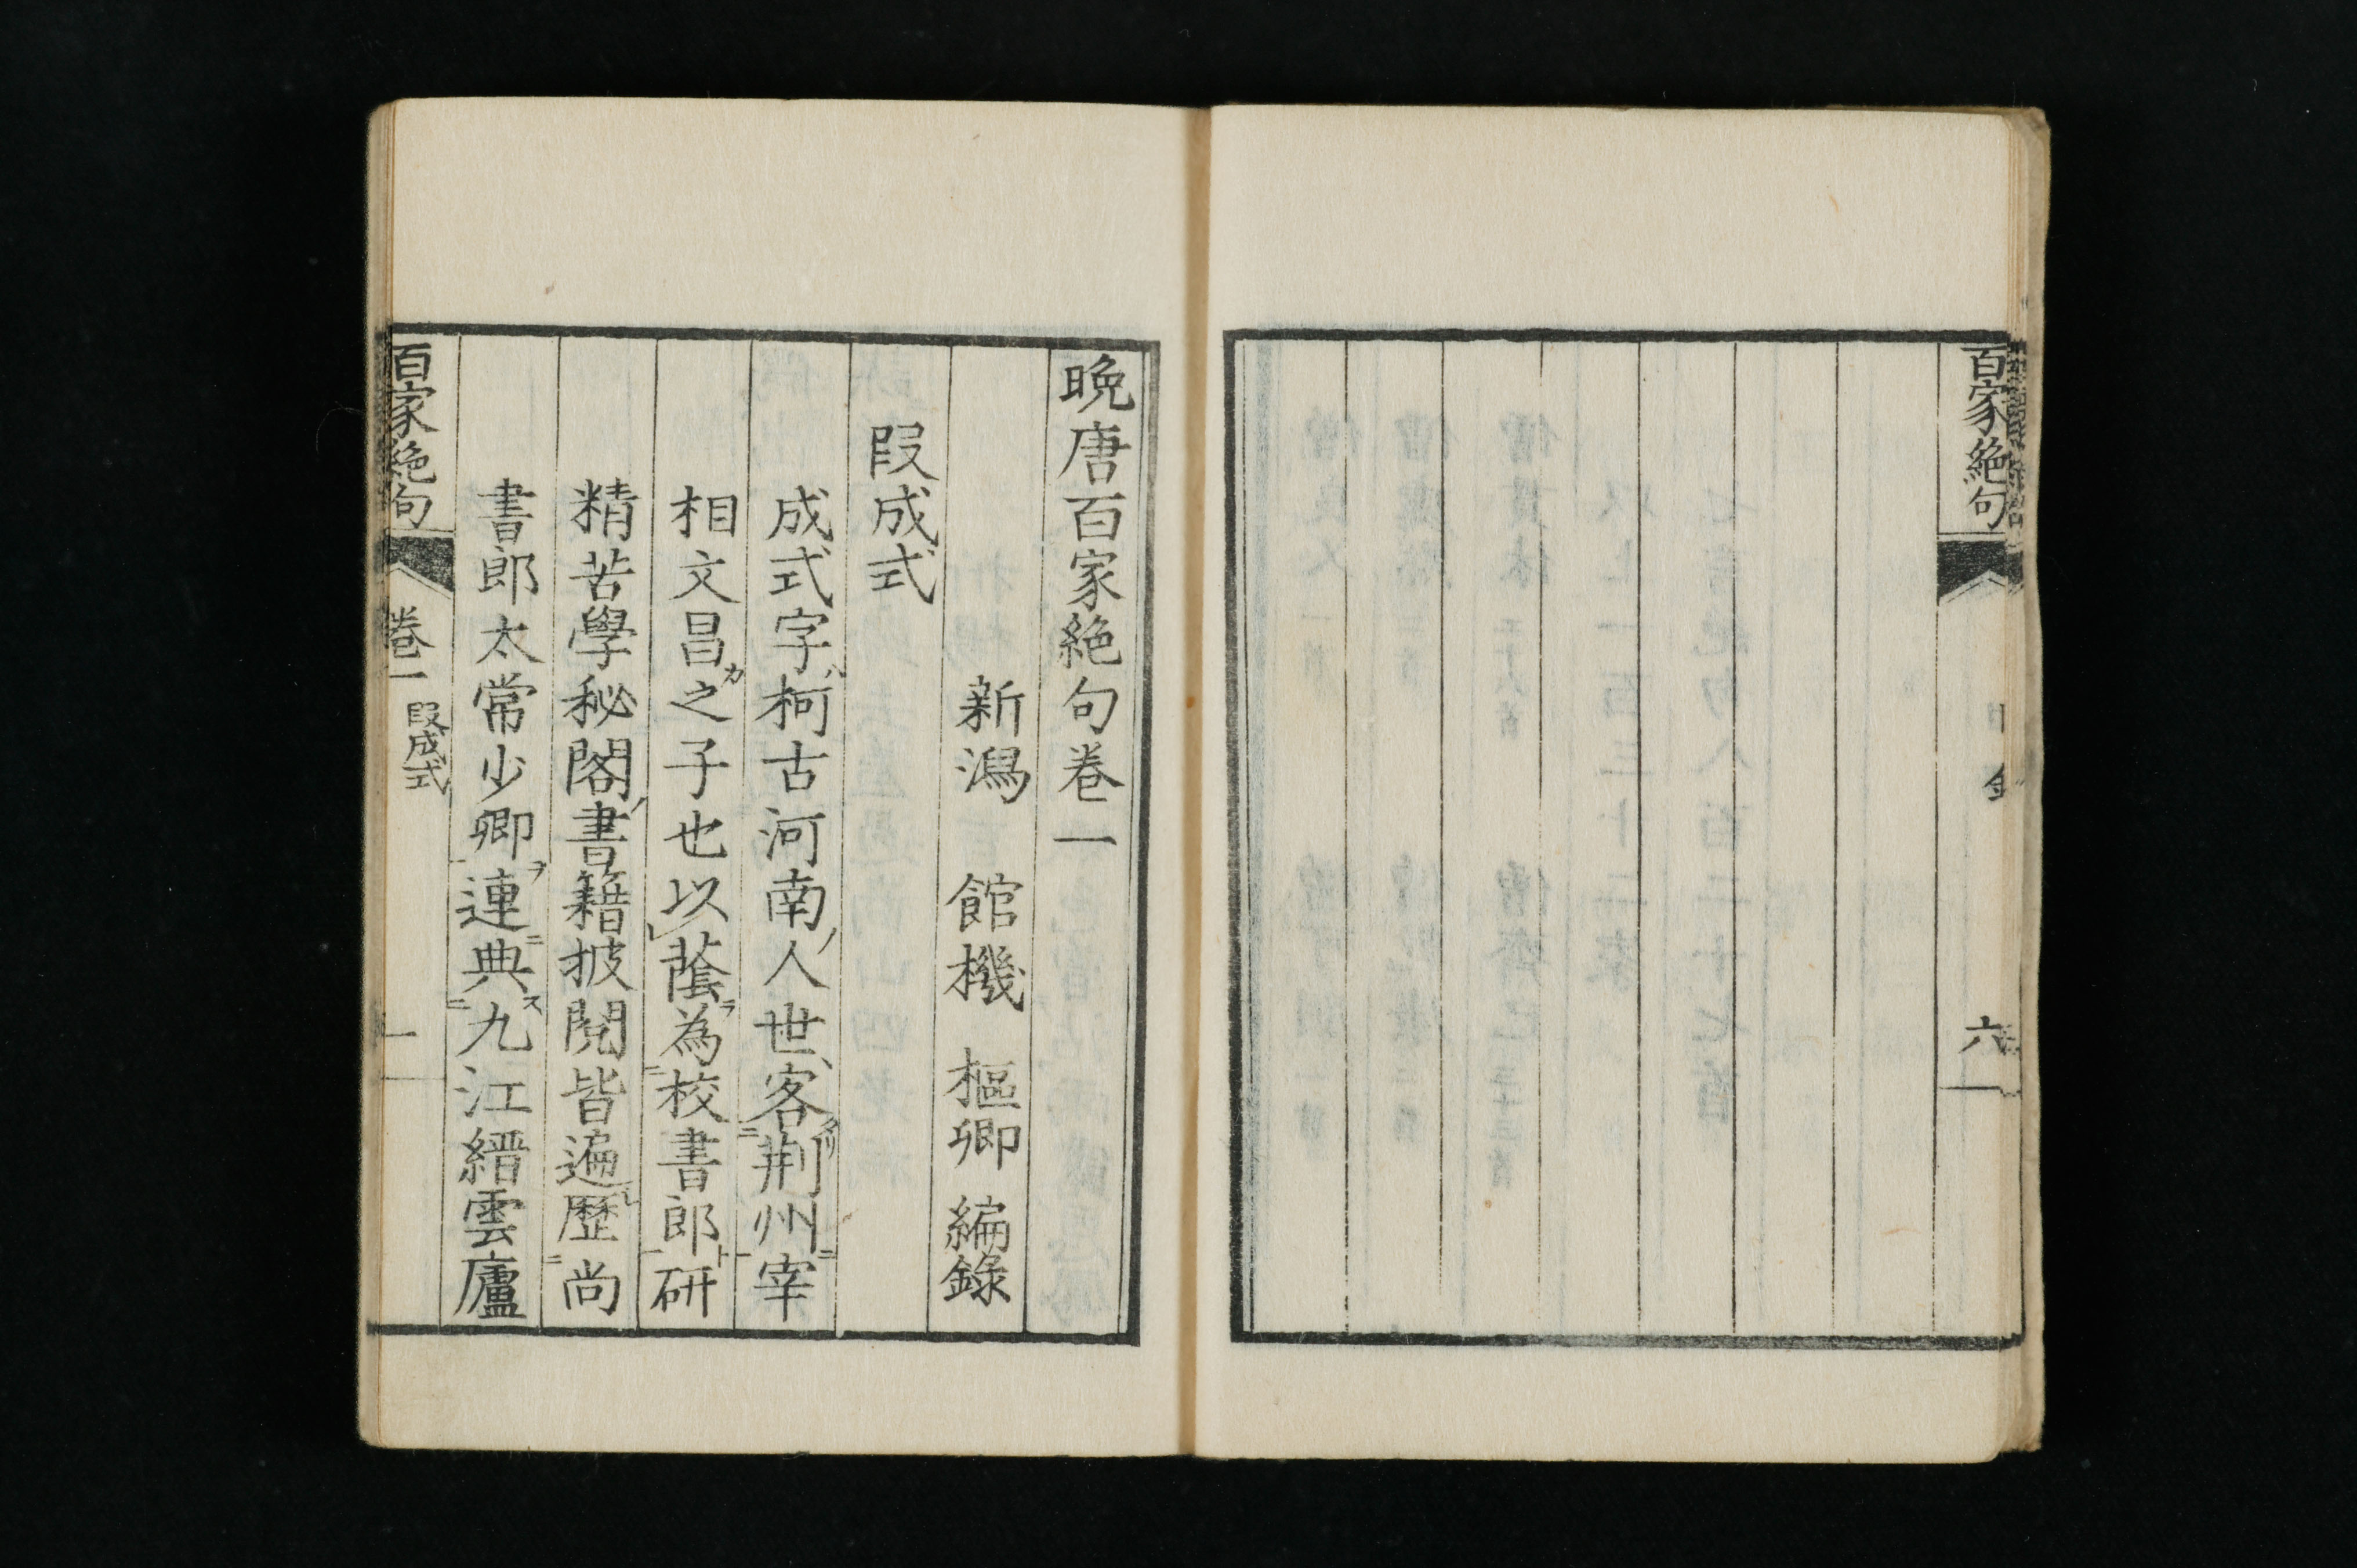 百家絶句
目錄
六
晩唐百家絶句卷一
新潟 館機 樞卿 編錄
段成式
成式字柯古河南人世客荆州宰
相文昌之子也以蔭為校書郎研
精苦學秘閣書籍披閲皆遍歷尚
書郎太常少卿連典九江縉雲廬
百家絶句
卷一
段成式
一